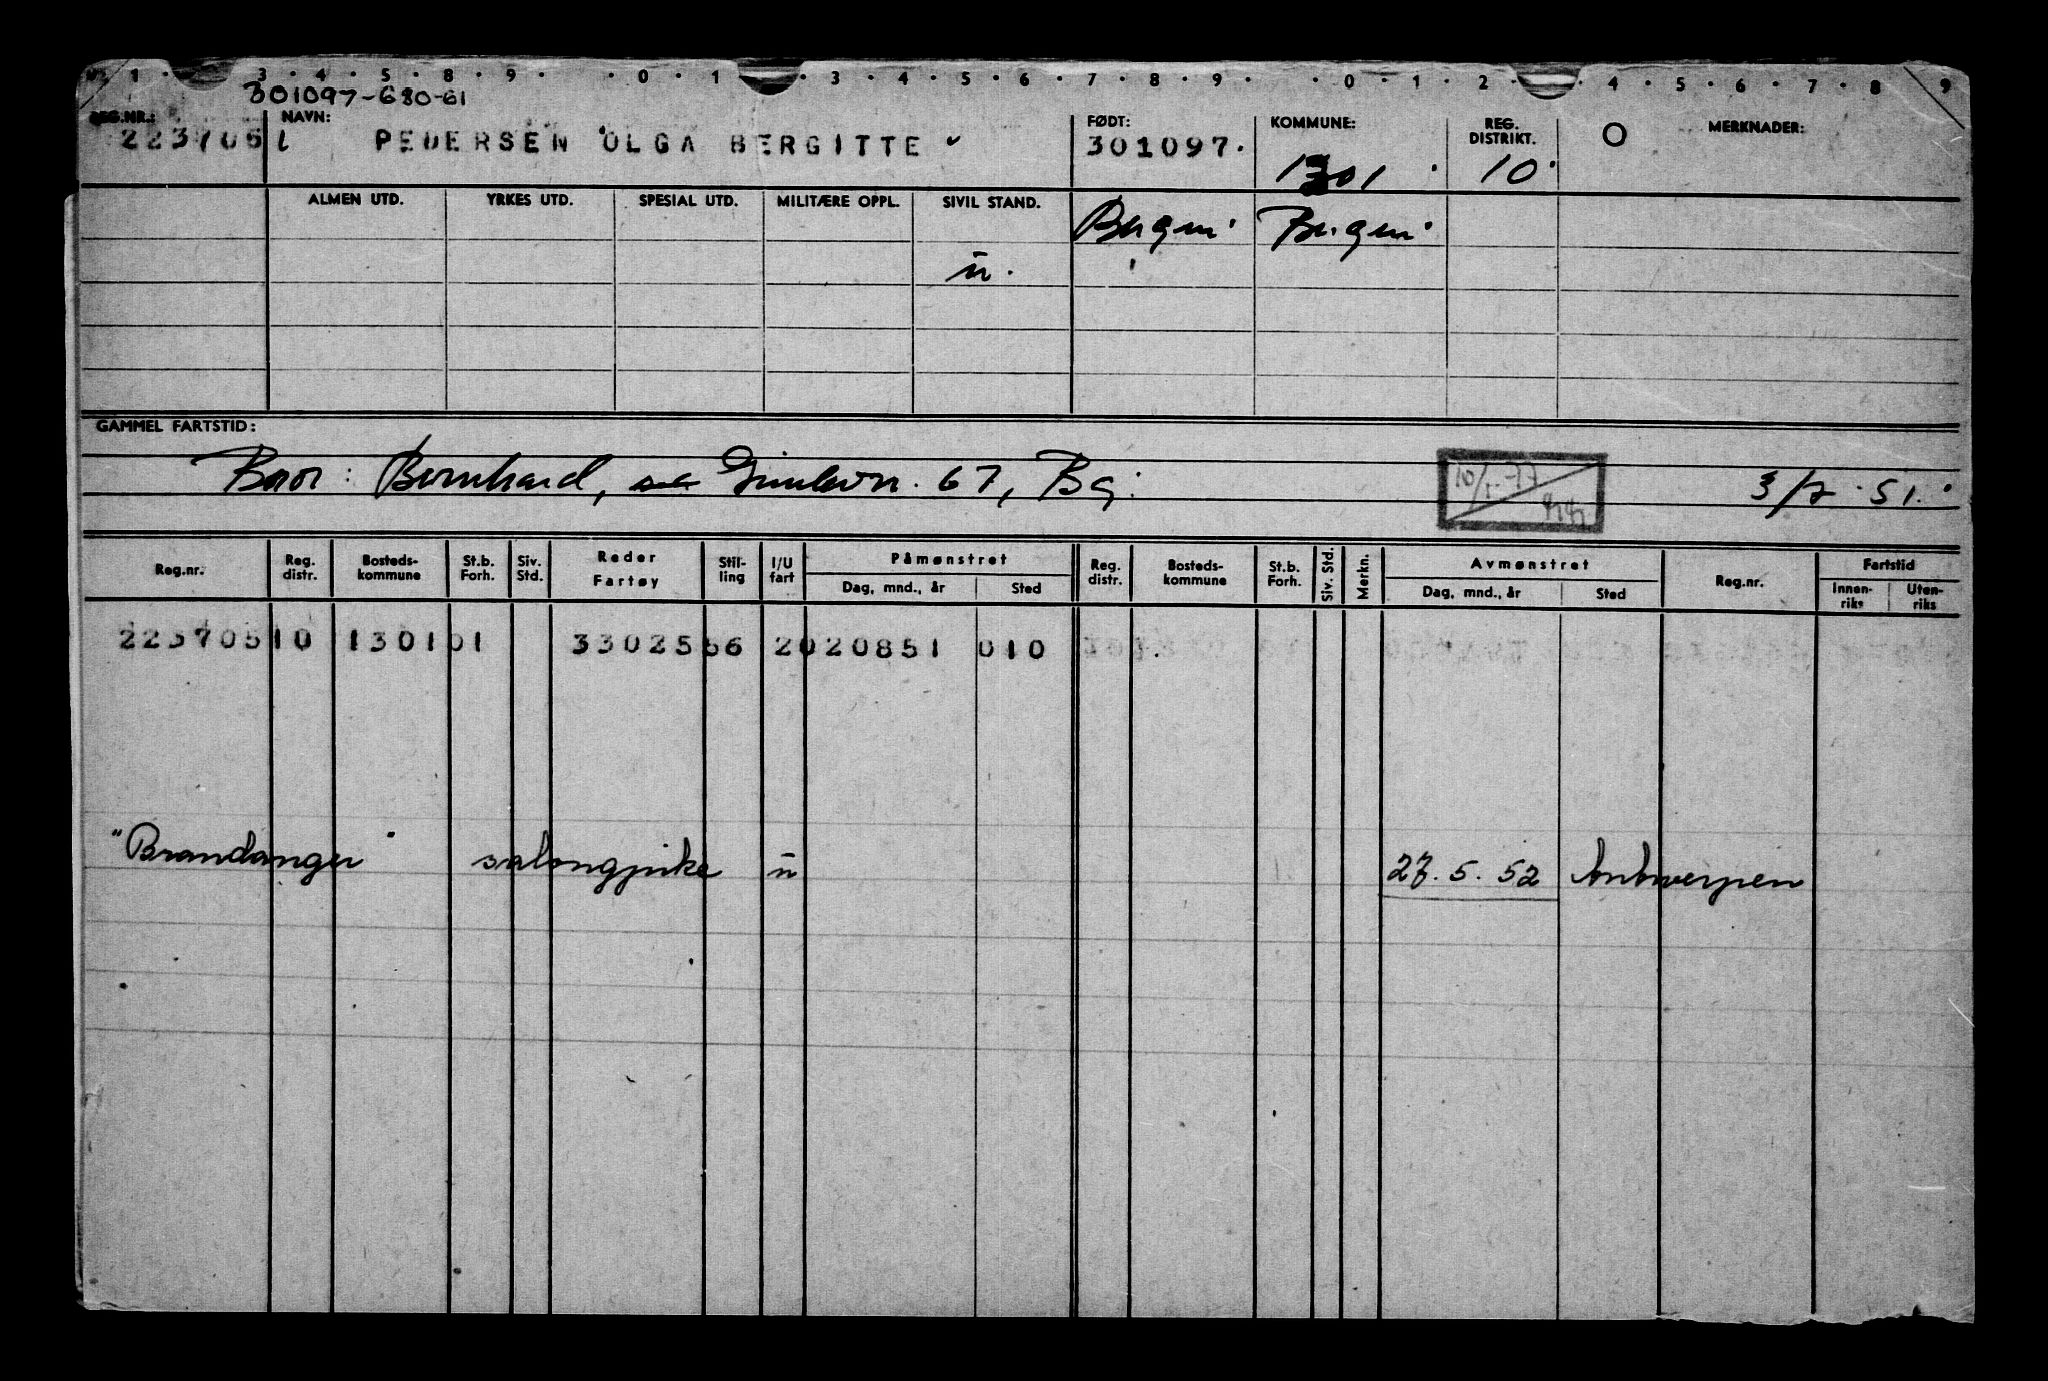 1 · 3 · 4 · 5 · 8 · 9 · · 0 · 1 · 3 · 4 · 5 · 6 · 7 · 8 · 9 · · 0 · 1 · 2 · · 4 · 5 · 6 · 7 · 8 9
301097-680-61
REG.NR.: NAVN: FØDT: KOMMUNE: REG. DISTRIKT. MERKNADER:
223706 PEDERSEN OLGA BERGITTE 301097. 1301 10
ALMEN UTD. YRKES UTD. SPESIAL UTD. MILITÆRE OPPL. SIVIL STAND. Bergen Bergen
u
GAMMEL FARTSTID:
Bror: Bernhard, 67, Bg. 10/1-77 3/7.51.
Reg.nr. Reg. distr. Bosteds-kommune St.b. Forh. Siv. Std. Reder Fartøy Stil-ling I/U fart Påmønstret Reg. distr. Bosteds-kommune St.b. Forh. Siv. Std. Merkn. Avmønstret Reg.nr. Fartstid
Dag, mnd., år Sted Dag, mnd., år Sted Innen-riks Uten-riks
2237051013010 1 330255 6 2020851 010
"Brandanger" salongpike u 27.5.52 Antwerpen